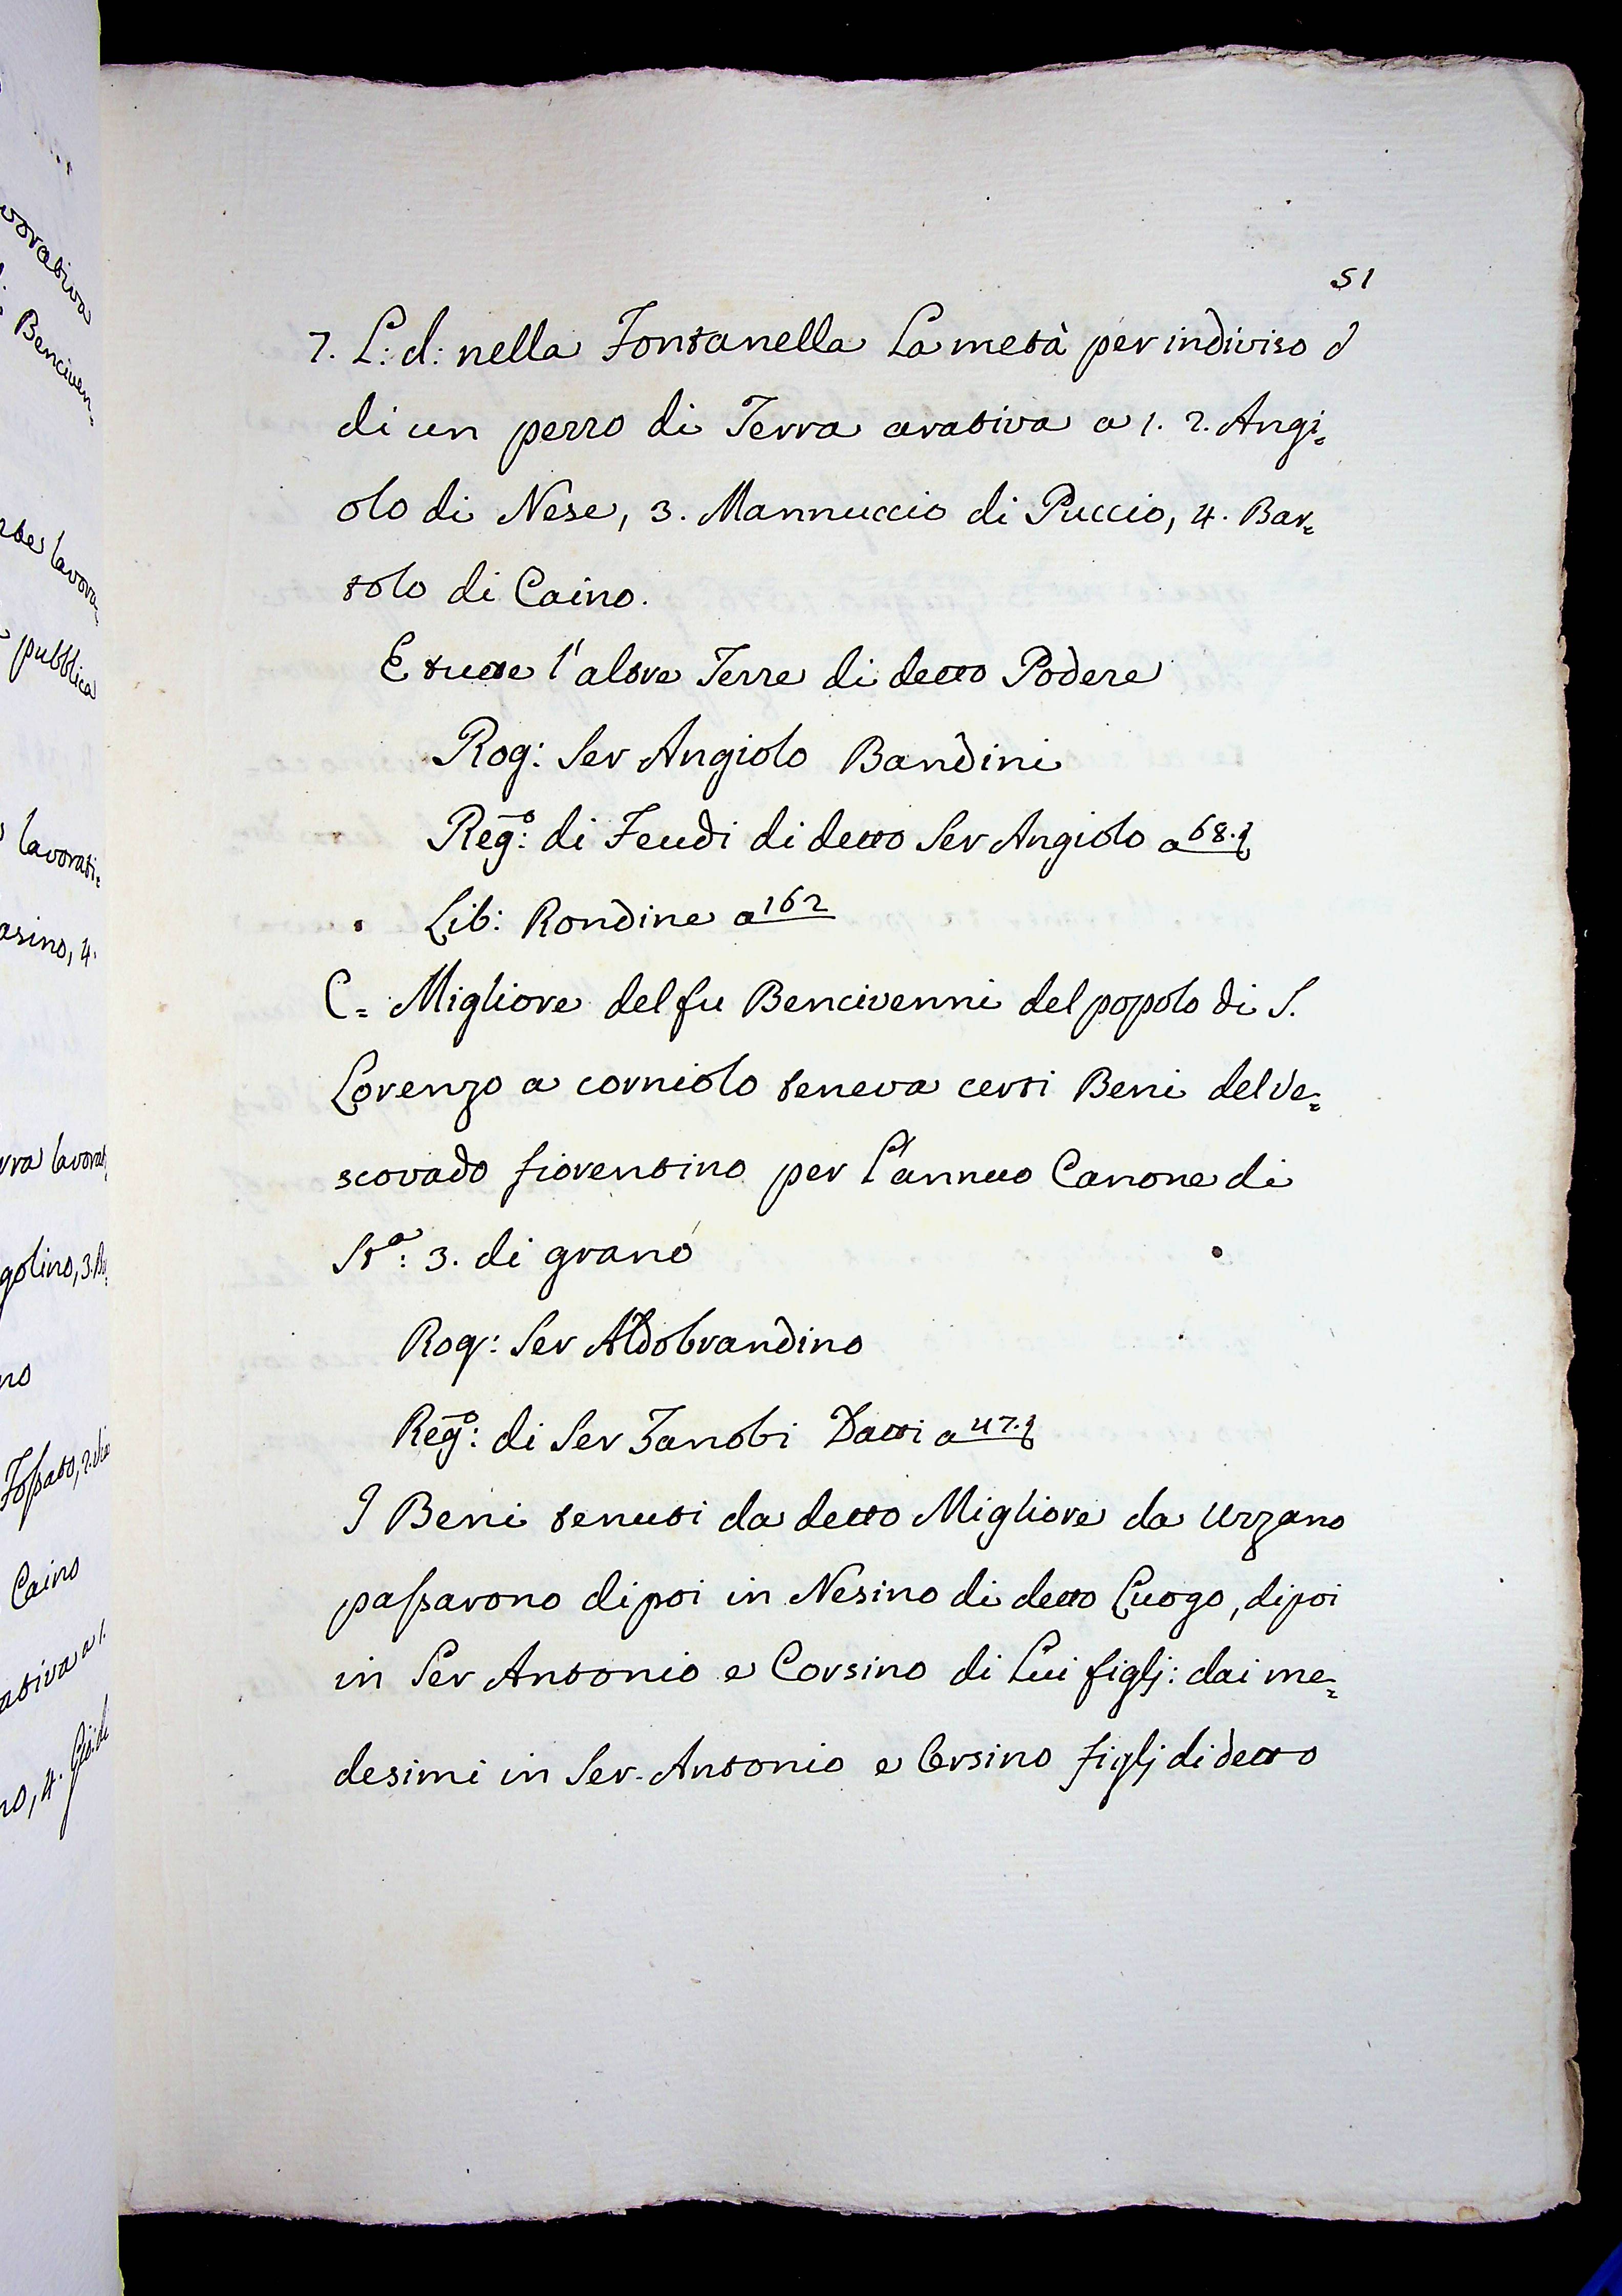 vorativa
Benciven-
lavora-
pubblica
lavorati=
asino, 4.
rra lavorat
golino, 3. B
no
Fossato, 2. via
Caino
ativa a 1.
no, 4.
51
7. L: d: nella Fontanella La metà per indiviso d
di un pezzo di Terra arativa a 1. 2. Angi=
olo di Nese, 3. Mannuccio di Puccio, 4. Bar=
tolo di Caino.
E tutte l'altre Terre di detto Podere
Rog: Ser Angiolo Bandini
Reg.o: di Feudi di detto Ser Angiolo a 68.
Lib: Rondine a 162
C= Migliore del fu Bencivenni del popolo di S.
Lorenzo a corniolo teneva certi Beni del Ve=
scovado fiorentino per L'annuo Canone di
Sta: 3. di grano
Rog: Ser Aldobrandino
Reg.o: di Ser Zanobi Datti a 47.
I Beni tenuti da detto Migliore da Uzzano
passarono dipoi in Nesino di detto Luogo, dipoi
in Ser Antonio e Corsino di Lui figlj: dai me=
desimi in Ser Antonio e Corsino figlj di detto